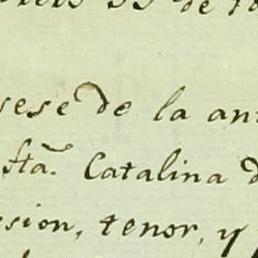 de
sese de la an
sta. Catalina d
sion, tenor, y